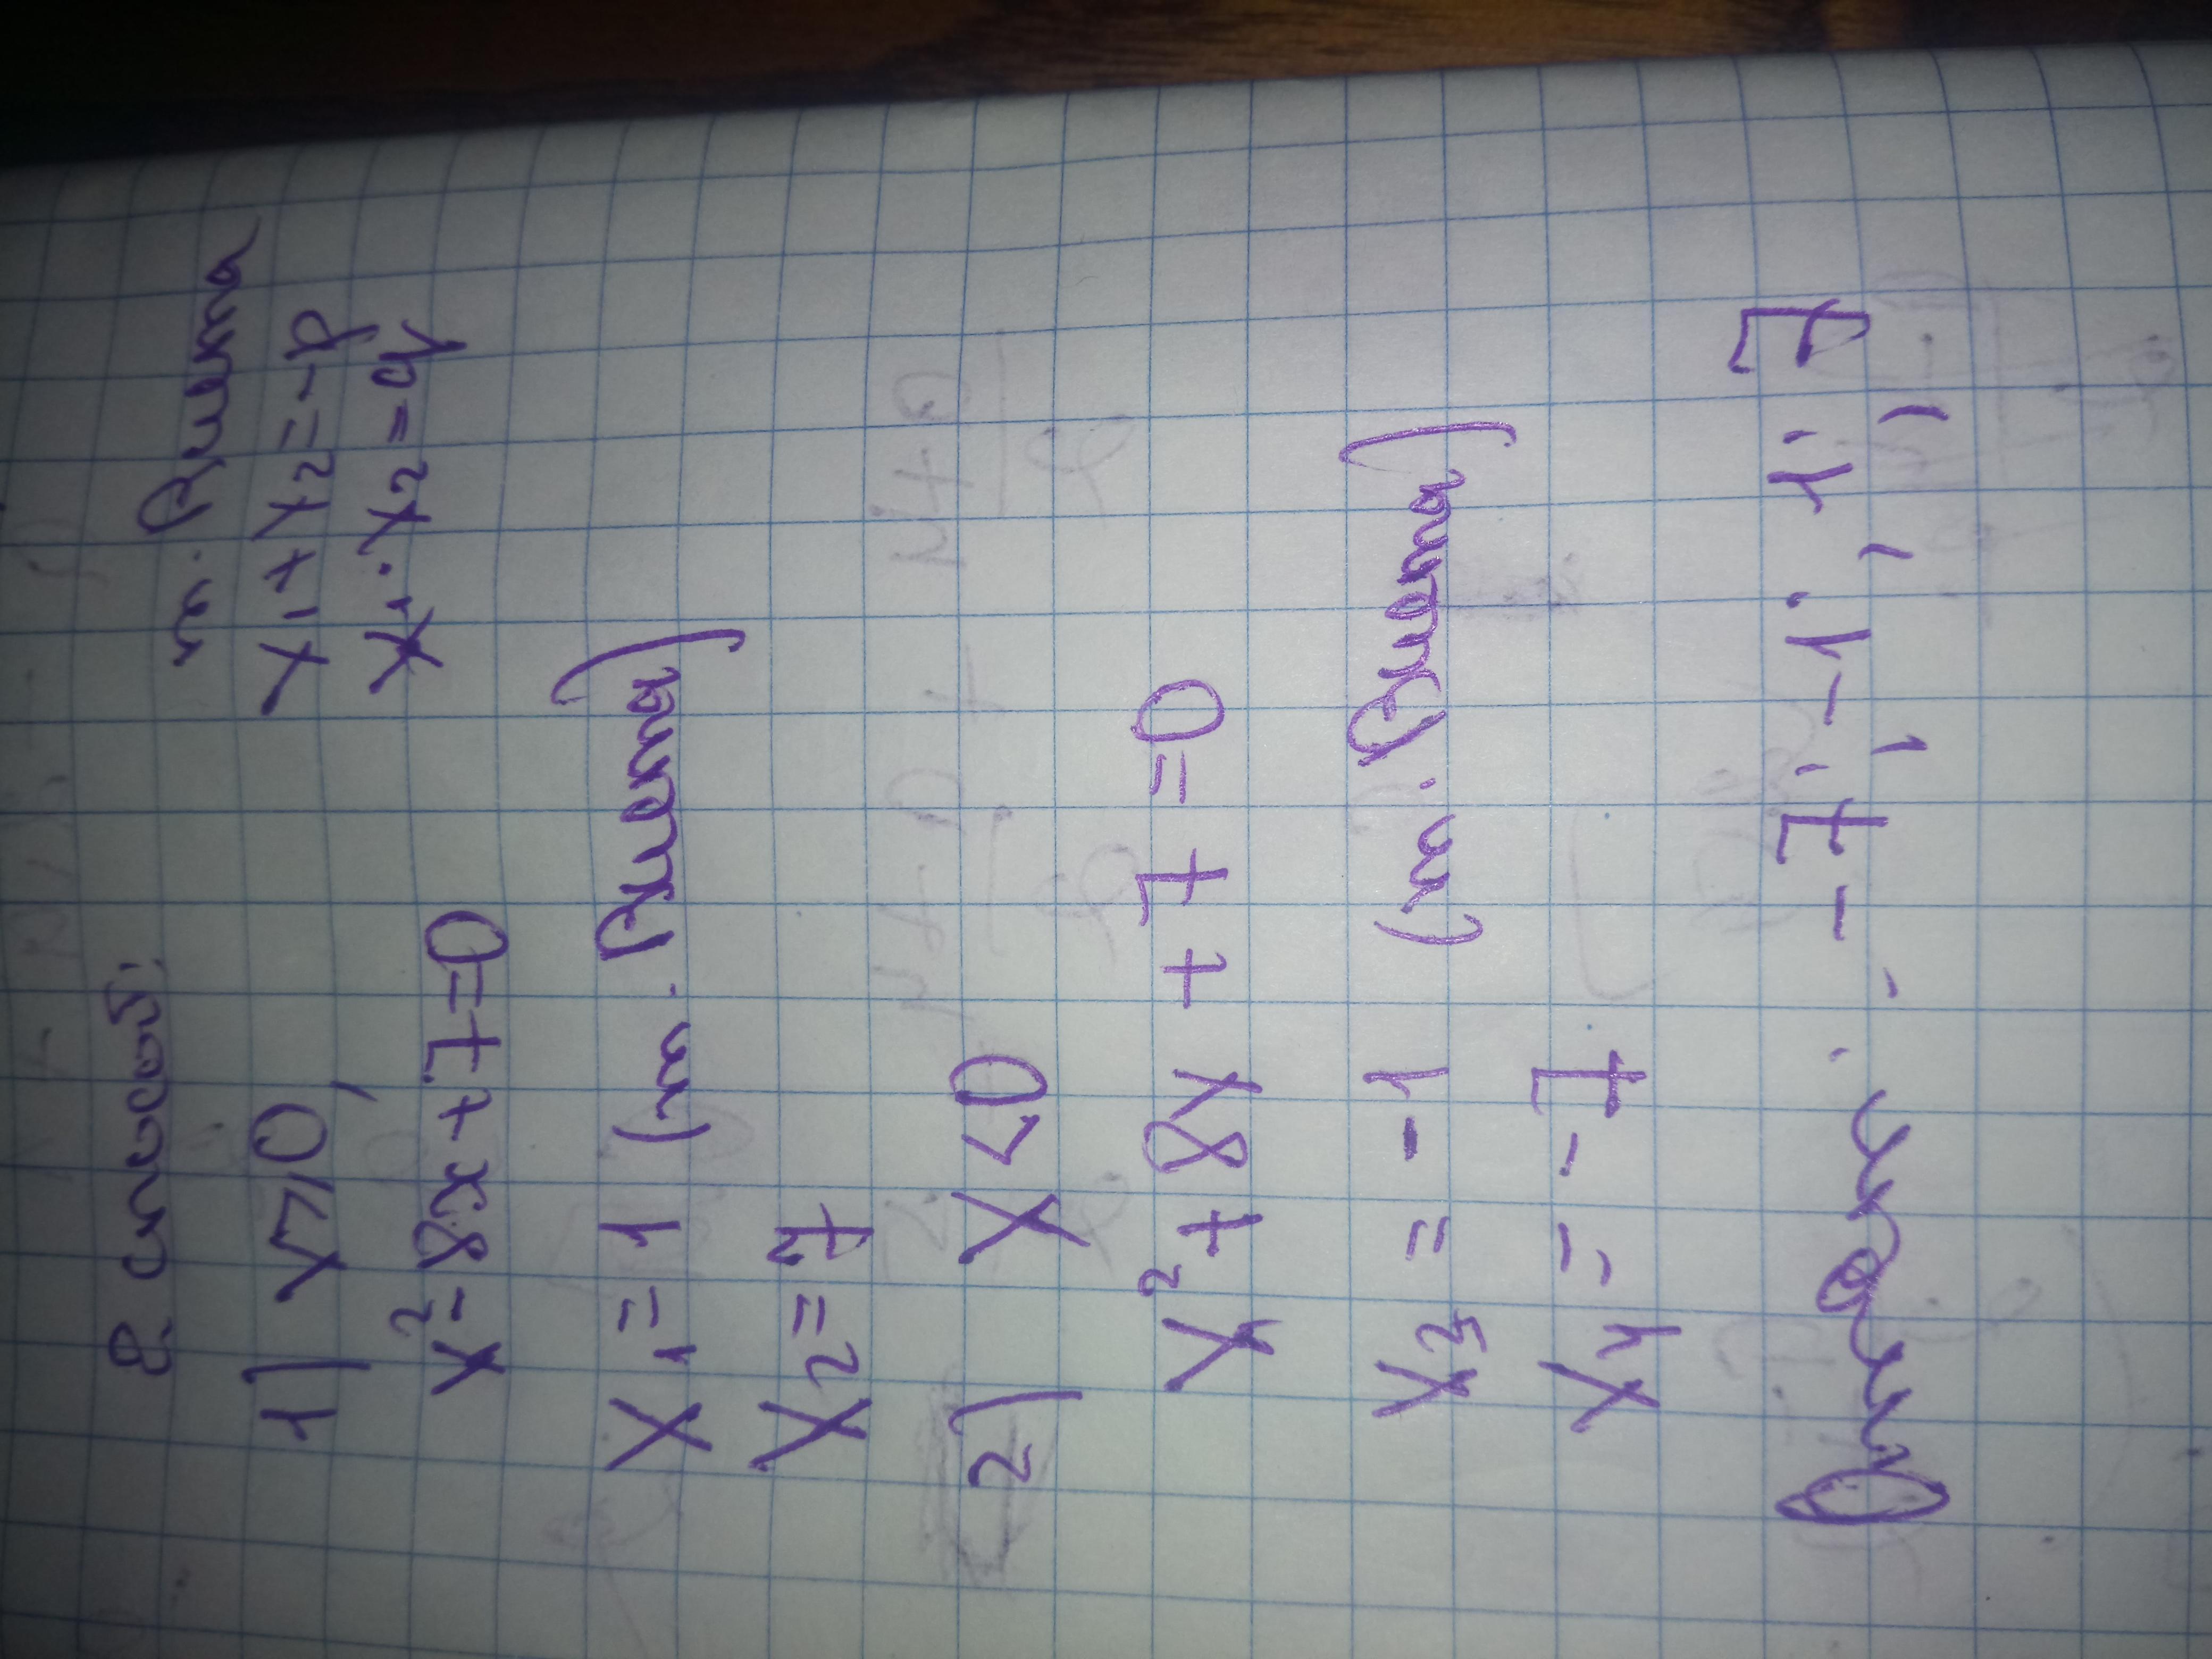 2 способ:
т. Виета
1) x≥0,
x₁+x₂=-p
x₁·x₂=q
x²-8x+7=0
x₁=1 (т. Виета)
x₂=7
2) x<0
x²+8x+7=0
x₃=-1 (т. Виета)
x₄=-7
Ответ: -7; -1; 1; 7